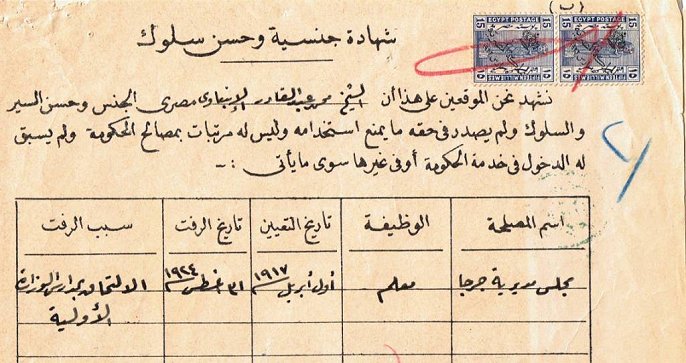 (ب)
15 EGYPT POSTAGE 15
15 EGYPT POSTAGE 15
FIFTEEN MILLIEMES
FIFTEEN MILLIEMES
شهادة جنسية وحسن سلوك
نشهد نحن الموقعين على هذا أن الشيخ محمد عبد القادر الإنبارى مصرى الجنس وحسن السير
والسلوك ولم يصدر فى حقه ما يمنع استخدامه وليس له مرتبات بمصالح الحكومة ولم يسبق
له الدخول فى خدمة الحكومة أو فى غيرها سوى ما يأتى :-
اسم المصلحة الوظيفة تاريخ التعيين تاريخ الرفت سبب الرفت
مجلس مديرية جرجا معلم أول أبريل ١٩١٧ ٣١ أغسطس ١٩٢٤ الالتحاق بمدارس الوزارة
الأولية